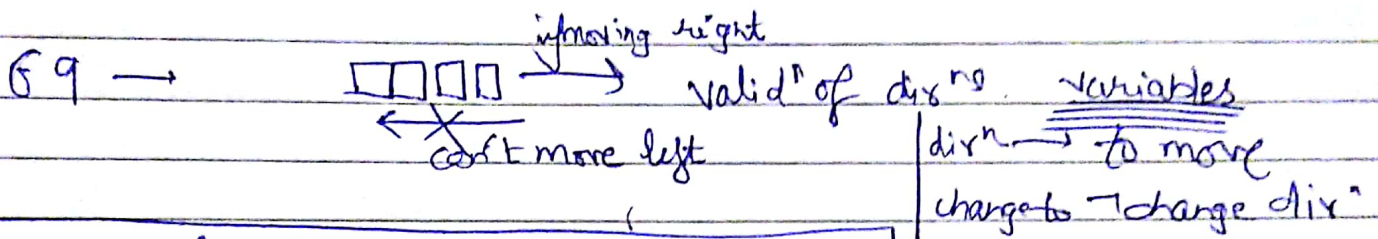 if moving right
69 → valid^n of dir^ns. variables
can't move left
dir^n → to move
change to → change dir^n